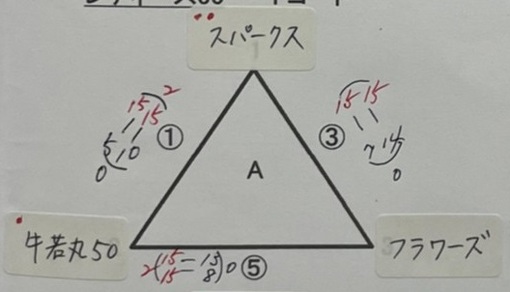 スパークス
2
15 15
15 15
①
③
5 10
7 14
0
0
A
牛若丸50
フラワーズ
2(15-13
15-8)0
⑤